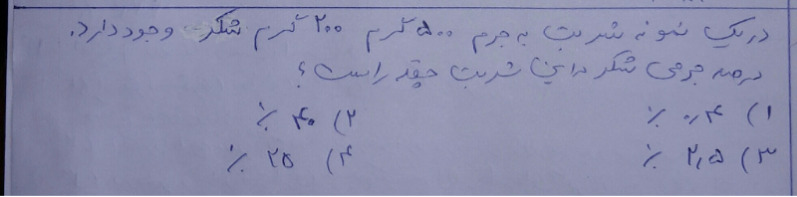 در یک نمونه شربت به جرم ۵۰۰ گرم ۲۰۰ گرم شکر وجود دارد.
درصد جرمی شکر در این شربت چقدر است؟
۱) ۰٫۴ ٪ ۲) ۴۰ ٪
۳) ۲٫۵ ٪ ۴) ۲۵ ٪